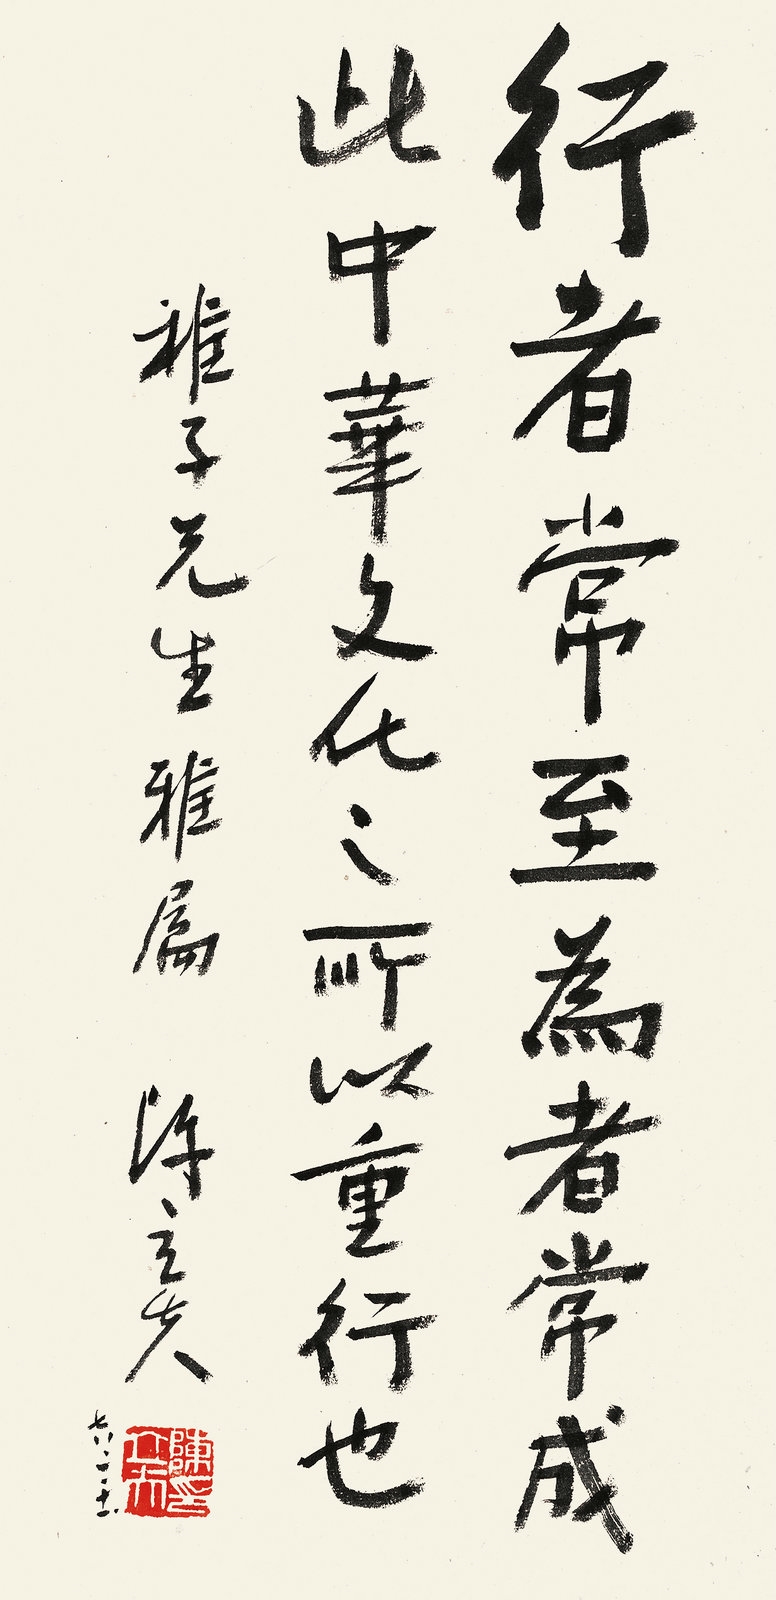 行者常至為者常成
此中華文化之所以重行也
稚子先生雅屬 陳立夫
陳立夫印